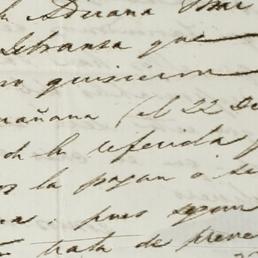 Aduana
Libranza que
no quisieron
mañana (el 22 De
de la referida
la pagan o se
pues segun
trata de preve